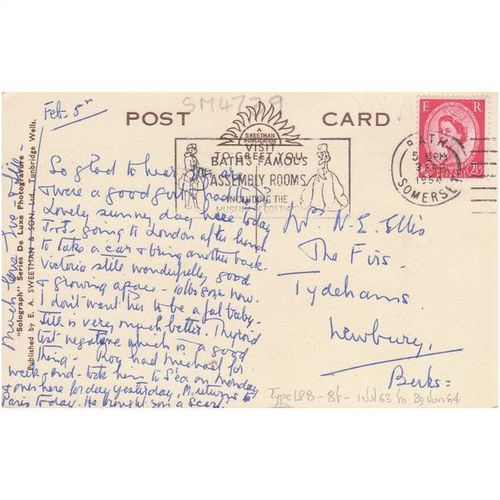 SM4779
POST CARD
Feb. 5th
SWEETMAN
PUBLICATION
TO GREET YOU
VISIT
BATH'S FAMOUS
ASSEMBLY ROOMS
INCLUDING THE
MUSEUM OF COSTUME
BATH
5 PM
SOMERSET
E R
2½D
So glad to hear you are
there a good girl
Lovely sunny day here today
going to London after lunch
to take a car & bring another back.
Victoria still wonderfully good
& growing apace - 10lbs now.
I don't want this to be a fat baby.
Jill is very much better. Thyroid
test negative which is a good
thing - Roy had Michael for
week-end - took him to on Monday
& over here for day yesterday. returns to
Paris today. He brought a scarf.
Much love
N. E. Ellis
The Firs.
Tydehams.
Newbury.
Berks =
"Solograph" Series De Luxe Photogravure
Published by E. A. SWEETMAN & SON, Ltd. Tunbridge Wells.
Type L88 - 8t - 1 Jul 63 to 29 Jan 64